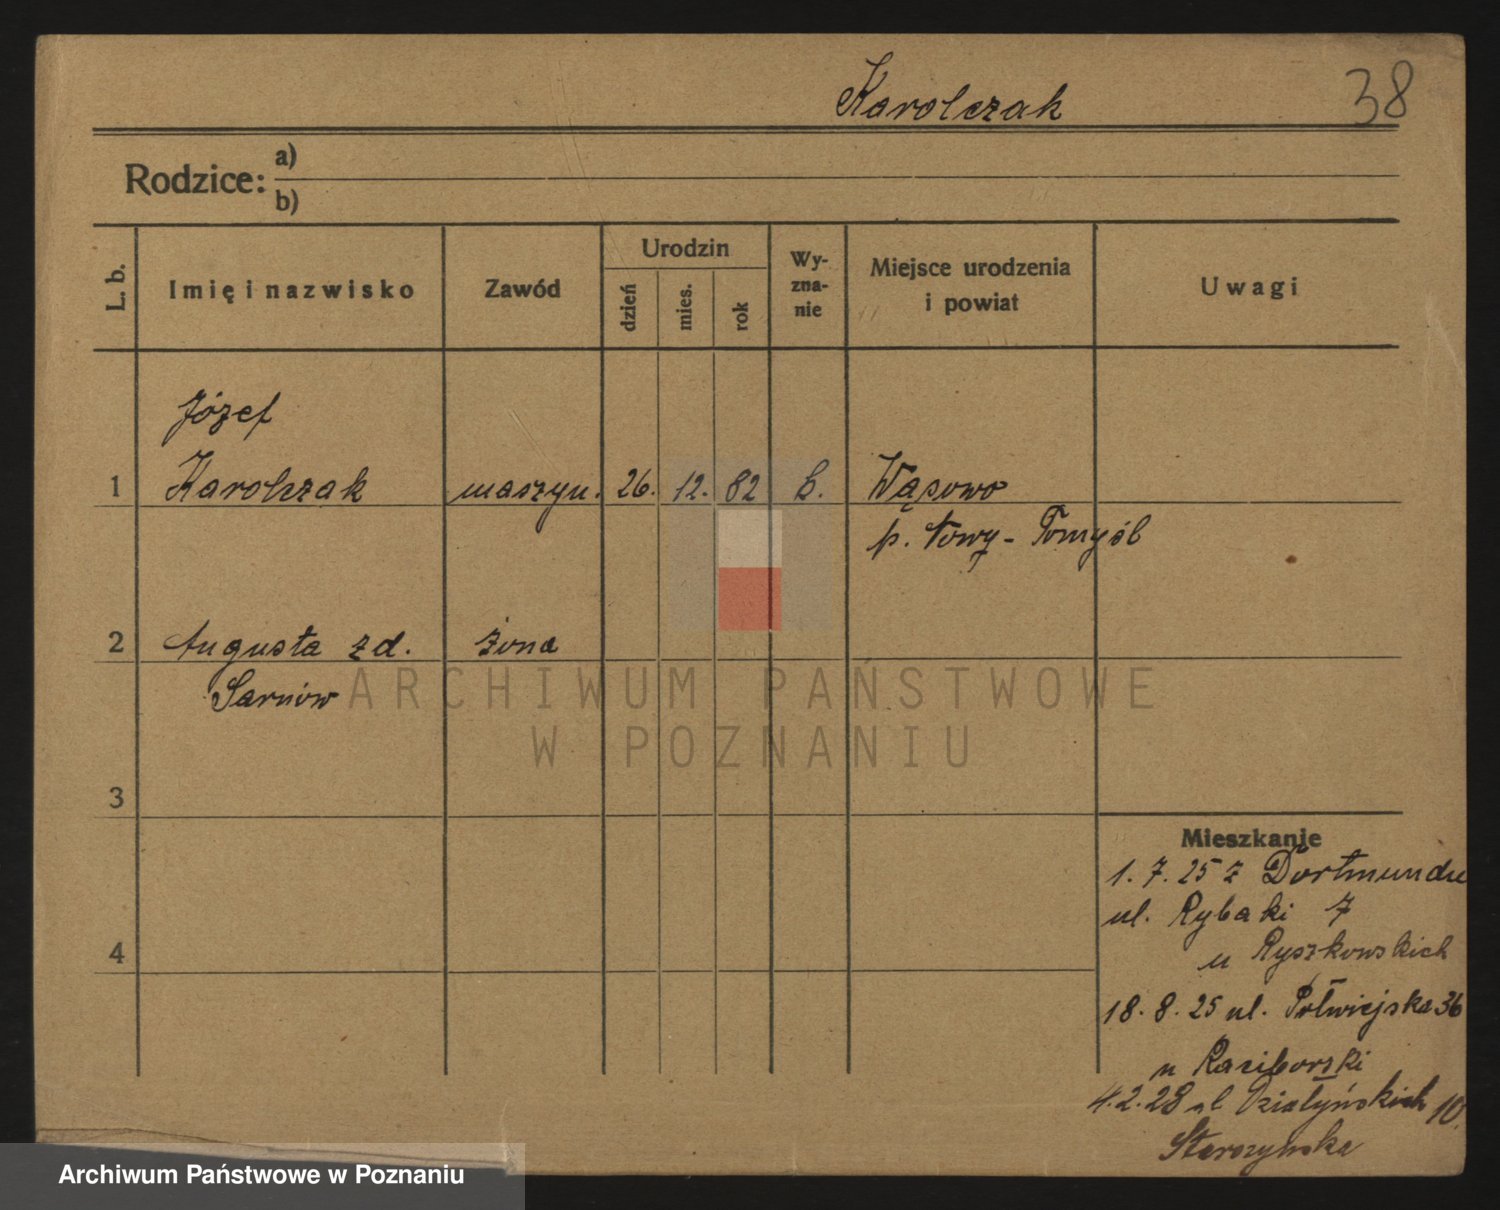 Karolczak 38
Rodzice: a)
b)
L. b. Imię i nazwisko Zawód Urodzin Wy-zna-nie Miejsce urodzenia i powiat Uwagi
dzień mies. rok
Józef
1 Karolczak maszyn. 26. 12. 82 b. Wąsowo
p. Nowy-Tomyśl
2 Augusta zd. żona
Sarnów
ARCHIWUM PAŃSTWOWE
W POZNANIU
3
Mieszkanie
1. 7. 25 z Dortmundu
ul. Rybaki 7
u Ryszkowskich
4
18. 8. 25 ul. Półwiejska 36
u Raciborski
4. 2. 28 ul Działyńskich 10.
Starszyńska
Archiwum Państwowe w Poznaniu